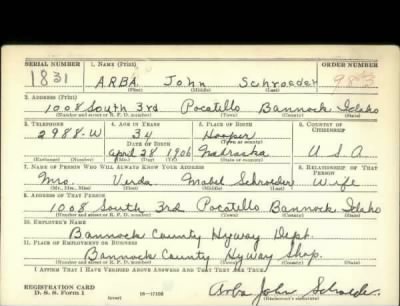 SERIAL NUMBER 1. NAME (Print) ORDER NUMBER
1831 ARBA John Schroeder
(First) (Middle) (Last)
2. ADDRESS (Print)
1008 South 3rd Pocatello Bannock Idaho
(Number and street or R. F. D. number) (Town) (County) (State)
3. TELEPHONE 4. AGE IN YEARS 5. PLACE OF BIRTH 6. COUNTRY OF CITIZENSHIP
2988-W 34 Hooper
DATE OF BIRTH (Town or county)
April 28 1906 Nebraska U S A
(Exchange) (Number) (Mo.) (Day) (Yr.) (State or country)
7. NAME OF PERSON WHO WILL ALWAYS KNOW YOUR ADDRESS 8. RELATIONSHIP OF THAT PERSON
Mrs. Verda Mabel Schroeder Wife
(Mr., Mrs., Miss) (First) (Middle) (Last)
9. ADDRESS OF THAT PERSON
1008 South 3rd Pocatello Bannock Idaho
(Number and street or R. F. D. number) (Town) (County) (State)
10. EMPLOYER'S NAME
Bannock County Hyway Dept.
11. PLACE OF EMPLOYMENT OR BUSINESS
Bannock County Hyway Shop.
I AFFIRM THAT I HAVE VERIFIED ABOVE ANSWERS AND THAT THEY ARE TRUE.
REGISTRATION CARD
D. S. S. Form 1 (over) Arba John Schroeder
(Registrant's signature)